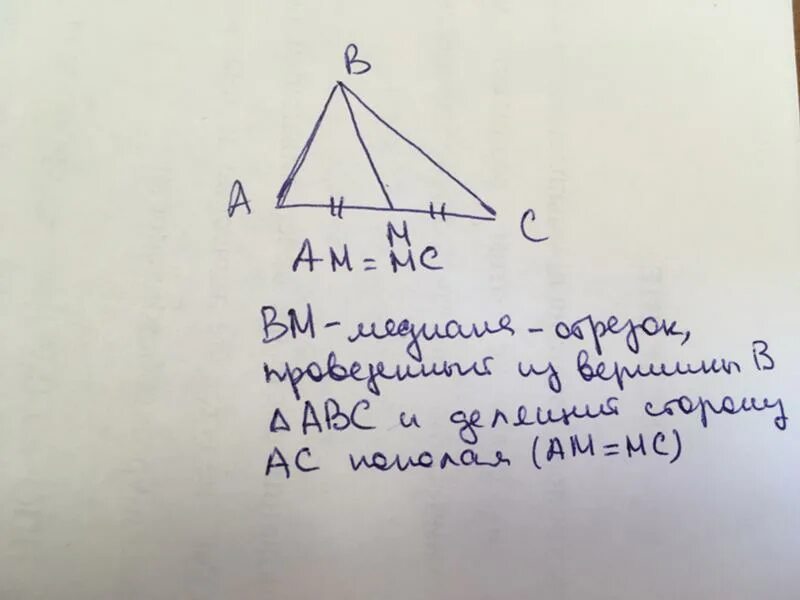 B
A
C
M
AM = MC
BM – медиана – отрезок,
проведенный из вершины B
△ABC и делящий сторону
AC пополам (AM = MC)